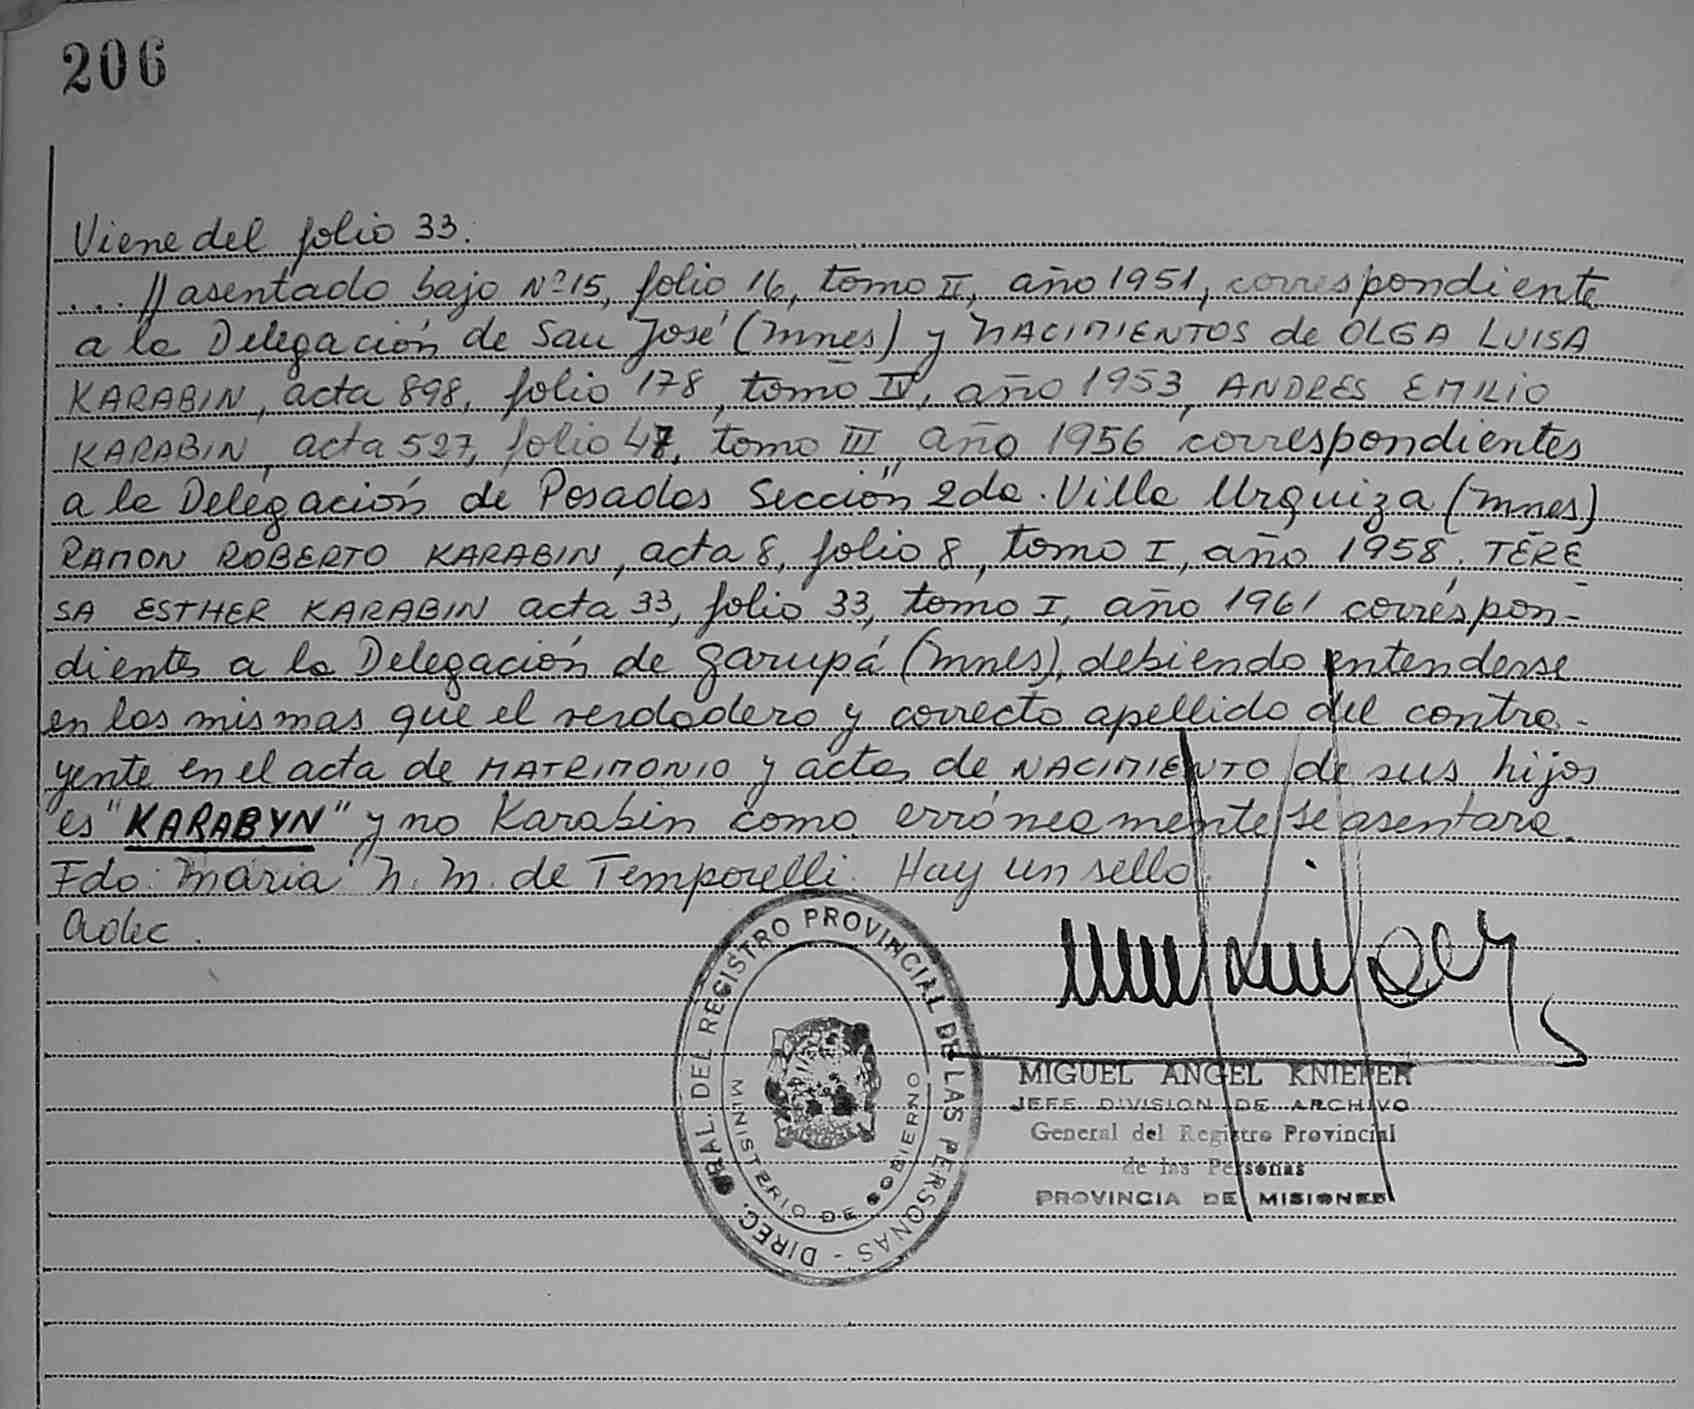 206
Viene del folio 33.
... // asentado bajo Nº 15, folio 16, tomo II, año 1951, correspondiente
a la Delegación de San José (Mnes) y NACIMIENTOS de OLGA LUISA
KARABIN, acta 898, folio 178, tomo IV, año 1953, ANDRES EMILIO
KARABIN, acta 527, folio 47, tomo III, año 1956 correspondientes
a la Delegación de Posadas Sección 2da. Villa Urquiza (Mnes)
RAMON ROBERTO KARABIN, acta 8, folio 8, tomo I, año 1958, TERE
SA ESTHER KARABIN acta 33, folio 33, tomo I, año 1961 correspon-
dientes a la Delegación de Garupá (Mnes), debiendo entenderse
en las mismas que el verdadero y correcto apellido del contra-
yente en el acta de MATRIMONIO y actas de NACIMIENTO de sus hijos
es "KARABYN" y no Karabin como erróneamente se asentara.
Fdo: Maria N. M. de Temporelli. Hay un sello.
DIREC. GRAL. DEL REGISTRO PROVINCIAL DE LAS PERSONAS -
MINISTERIO DE GOBIERNO
MIGUEL ANGEL KNIEPER
JEFE DIVISION DE ARCHIVO
General del Registro Provincial
de las Personas
PROVINCIA DE MISIONES